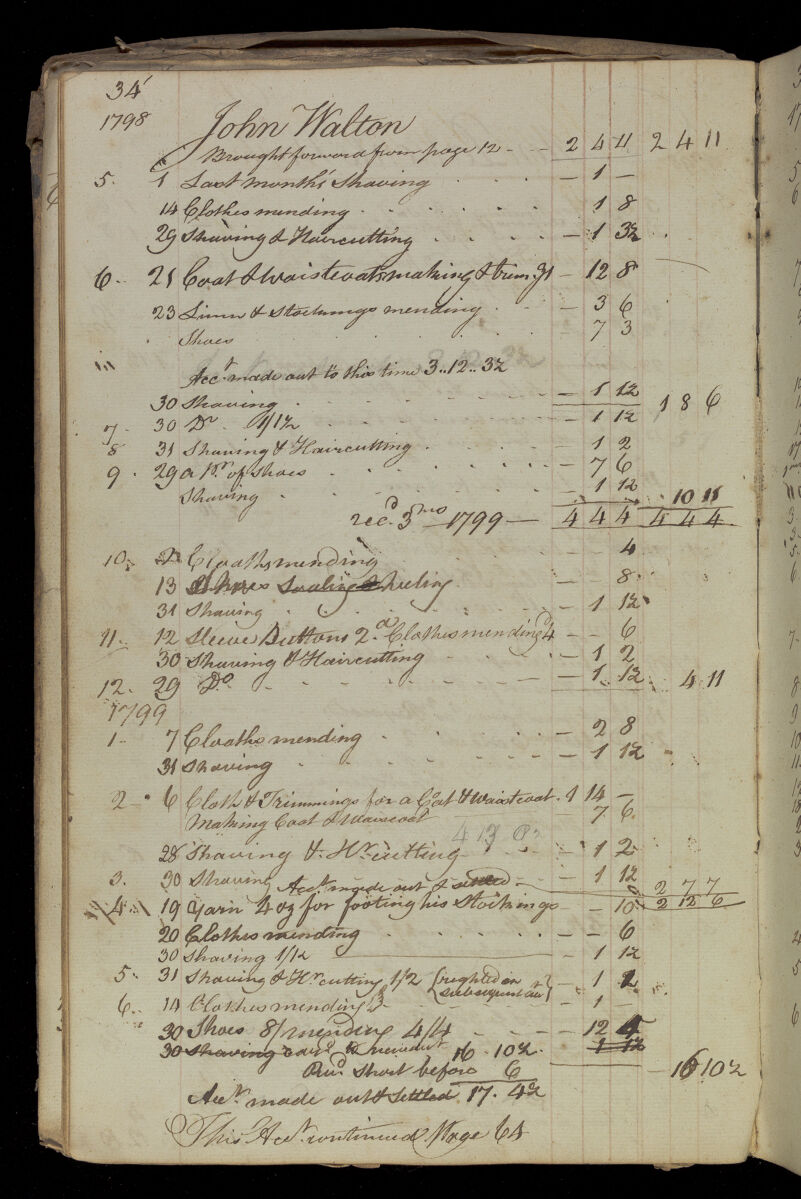 34
1798 John Walton
Brought forward from page 12 - - 2 4 11 2 4 11
5. 1 Last month's Shaving - 1 -
14 Clothes mending 1 8
29 Shaving & Haircutting - 1 3½
6 21 Coat & Waistcoats making & trim.gs - 12 8
23 Linen & Stockings mending - 3 6
Shoes - 7 3
Acct. made out to this time 3..12..3½
30 Shaving - 1 1½ 1 8 6
7 30 Do. 1/1½ - 1 1½
8 31 Shaving & Haircutting - 1 2
9 29 a Pr. of Shoes - 7 6
Shaving - 1 1½ 10 11
recd. 3 mo 1799 - 4 4 4 4 4 4
10 Cloaths mending 4
13 Shoes Soaling & heeling - - 8
31 Shaving - 1 1½
11 12 Sleeve Buttons 2d. Clothes mending 4d - - 6
30 Shaving & Haircutting - 1 2
12 29 Do - 1 1½ 4 11
1799
1 7 Cloaths mending - 2 8
31 Shaving - 1 1½
2 6 Cloth & Trimmings for a Coat & Waistcoat. 1 14 -
Making Coat & Waistcoat - 7 6
28 Shaving & Hr. cutting - 1 2
3. 30 Shaving - 1 1½
Acct. made out & settled 2 7 7
4 19 Yarn 4 oz for footing his Stockings - 10 2 12 6
20 Clothes mending - - 6
30 Shaving 1/1½ - 1 1½
5 31 Shaving & Hr. cutting 1/2 (righted in subsequent acct) - 1 2
6 14 Clothes mending - 1 -
30 Shoes 8/ mending 4/4 - 12 4
30 Shaving 1 1½
16 . 10½
Recd. Short before 6 - 16 10½
Acct. made out & settled 17. 4½
This Acct. continued Page 64